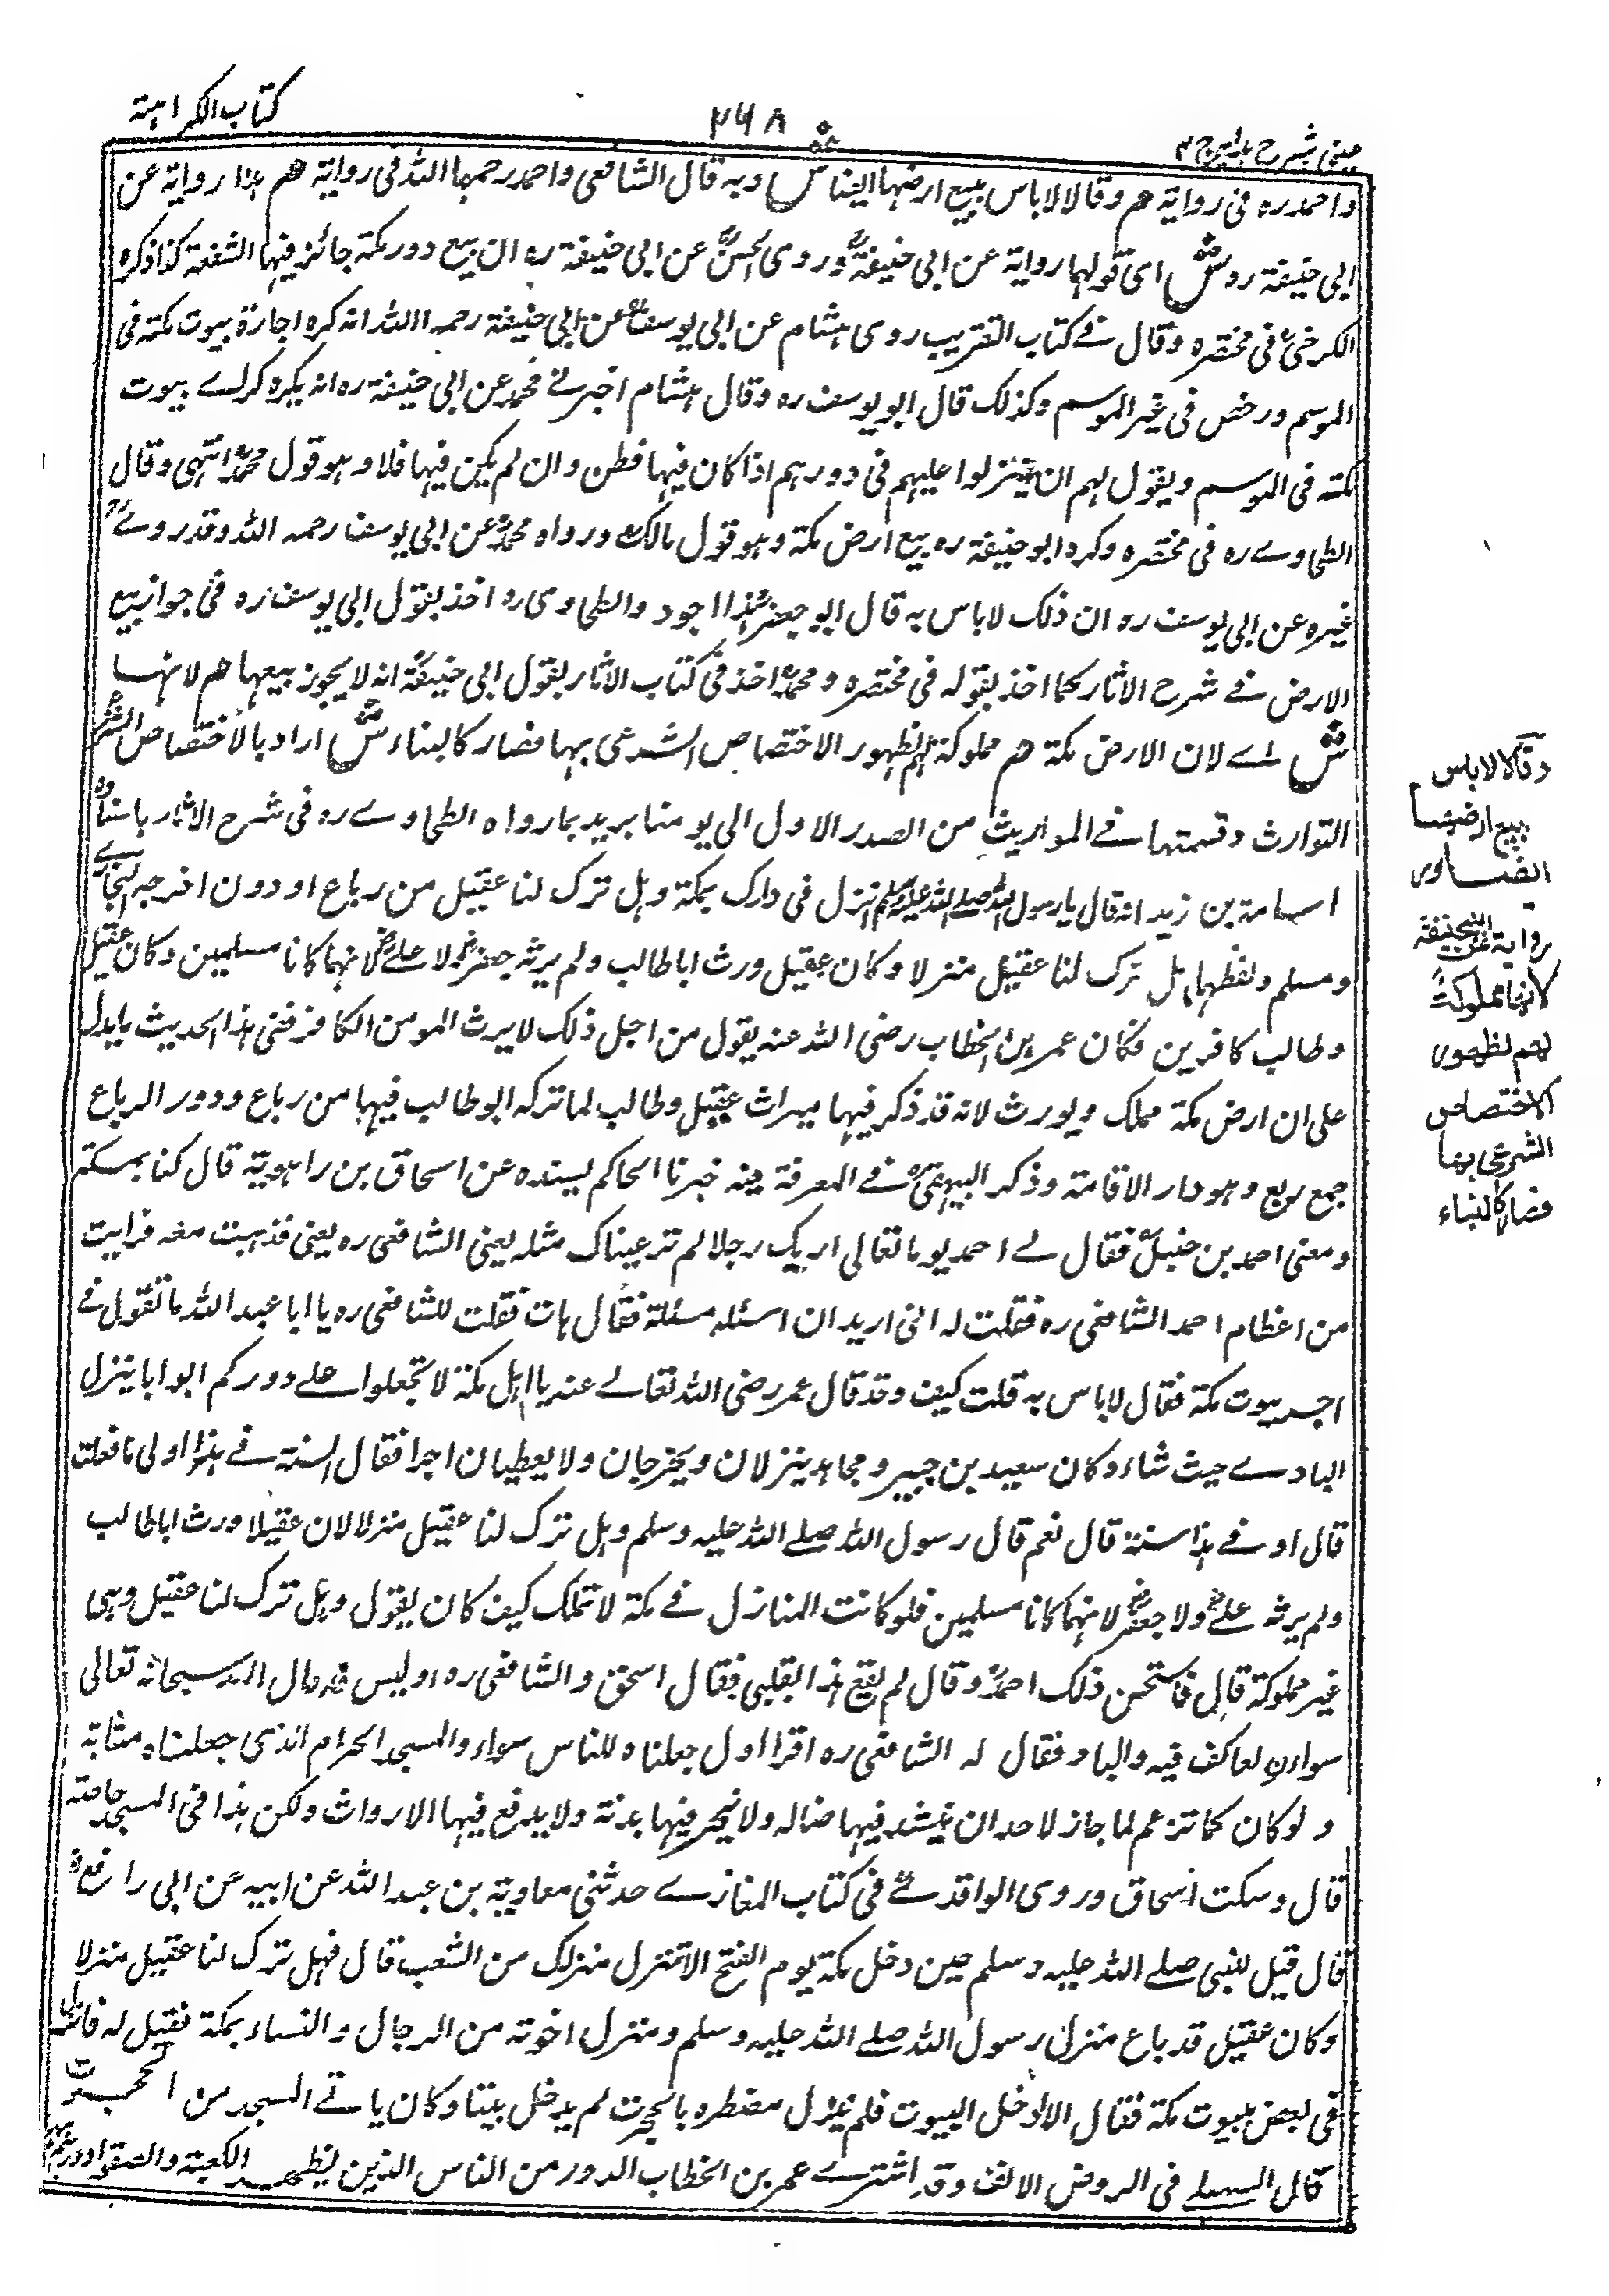 عینی شرح ہدایہ ج ۴
۲۶۸
كتاب الكراهية
واحمد ره فى رواية هم وقالا لا باس ببيع ارضها ايضا ش وبه قال الشافعى واحمد رحمهما الله فى رواية هم هذا رواية عن
ابى حنيفة ره ش اى قولهما رواية عن ابى حنيفة وروى الحسن عن ابى حنيفة ره ان بيع دور مكة جائز فيها الشفعة كذا ذكره
الكرخى فى مختصره وقال فے كتاب التقريب روى هشام عن ابى يوسف عن ابى حنيفة رحمه الله انه كره اجارة بيوت مكة فى
الموسم ورخص فى غير الموسم وكذلك قال ابو يوسف ره وقال هشام اخبرنے محمد عن ابى حنيفة ره انه يكره كراے بيوت
مكة فى الموسم ويقول لهم ان ينزلوا عليهم فى دورهم اذا كان فيها فضل وان لم يكن فيها فلا وهو قول محمد انتهى وقال
الطحاوے ره فى مختصره وكره ابو حنيفة ره بيع ارض مكة وهو قول مالك ورواه محمد عن ابى يوسف رحمه الله وقد روے
غيره عن ابى يوسف ره ان ذلك لا باس به قال ابو جعفر هذا اجود والطحاوى ره اخذ بقول ابى يوسف ره فى جواز بيع
الارض فے شرح الاثار كما اخذ بقوله فى مختصره ومحمد اخذ فى كتاب الاثار بقول ابى حنيفة انه لا يجوز بيعها هم لانها
ش اے لان الارض مكة هم مملوكة لهم لظهور الاختصاص الشرعى بها فصار كالبناء ش اراد بالاختصاص الشرعى
التوارث وقسمتها فے المواريث من الصدر الاول الى يومنا يريد بما رواه الطحاوے ره فى شرح الاثار باسناده
اسامة بن زيد انه قال يا رسول الله صلے الله عليه وسلم انزل فى دارك بمكة وهل ترك لنا عقيل من رباع او دون اخرجه البخارے
ومسلم ولفظهما هل ترك لنا عقيل منزلا وكان عقيل ورث ابا طالب ولم يرثه جعفر ولا علے لانهما كانا مسلمين وكان عقيل
وطالب كافرين فكان عمر بن الخطاب رضى الله عنه يقول من اجل ذلك لا يرث المومن الكافر ففى هذا الحديث ما يدل
على ان ارض مكة تملك ويورث لانه قد ذكر فيها ميراث عقيل وطالب لما تركه ابو طالب فيها من رباع ودور الرباع
جمع ربع وهو دار الاقامة وذكر البيهقى فے المعرفة فيه خبرنا الحاكم بسنده عن اسحاق بن راهوية قال كنا بمكة
ومعنى احمد بن حنبل فقال لے احمد يوما تعالى اريك رجلا لم تر عيناك مثله يعنى الشافعى ره يعنى فذهبت معه فرايت
من اعظام احمد الشافعى ره فقلت له انى اريد ان اسئله مسئلة فقال هات فقلت للشافعى ره يا ابا عبد الله ما تقول فے
اجر بيوت مكة فقال لا باس به قلت كيف وقد قال عمر رضى الله تعالے عنه يا اهل مكة لا تجعلوا علے دوركم ابوابا ينزل
البادے حيث شاء وكان سعيد بن جبير ومجاهد ينزلان ويخرجان ولا يعطيان اجرا فقال السنة فے هذا اولى ما فعلت
قال او فے هذا سنة قال نعم قال رسول الله صلے الله عليه وسلم وهل ترك لنا عقيل منزلا لان عقيلا ورث ابا طالب
ولم يرثه علے ولا جعفر لانهما كانا مسلمين فلو كانت المنازل فے مكة لا تملك كيف كان يقول وهل ترك لنا عقيل وهى
غير مملوكة قال فاستحسن ذلك احمد وقال لم يقع هذا بقلبى فقال اسحق والشافعى ره او ليس قد قال الله سبحانه تعالى
سواءن لعاكف فيه والباد فقال له الشافعى ره اقرا اول جعلناه للناس سواء والمسجد الحرام الذى جعلناه مثابة
ولو كان كما تزعم لما جاز لاحد ان ينشد فيها ضالة ولا ينحر فيها بدنة ولا يدفع فيها الارواث ولكن هذا فى المسجد خاصة
قال وسكت اسحاق وروى الواقدے فى كتاب المغازے حدثنى معاوية بن عبد الله عن ابيه عن ابى رافع
قال قيل للنبى صلے الله عليه وسلم حين دخل مكة يوم الفتح الا تنزل منزلك من الشعب قال فهل ترك لنا عقيل منزلا
وكان عقيل قد باع منزل رسول الله صلے الله عليه وسلم ومنزل اخوته من الرجال والنساء بمكة فقيل له فانزل
فى بعض بيوت مكة فقال لا ادخل البيوت فلم ينزل مضطره بالحجرت لم يدخل بيتا وكان ياتے المسجد من الحجرت
قال السهيلے فى الروض الانف وقد اشترے عمر بن الخطاب الدور من الناس الذين الكعبة والصقوا دورهم
وقالا لا باس
ببيع ارضها
ايضا وهو
رواية عن ابيحنيفة
لانها مملوكة
لهم لظهور
الاختصاص
الشرعى بها
فصار كالبناء